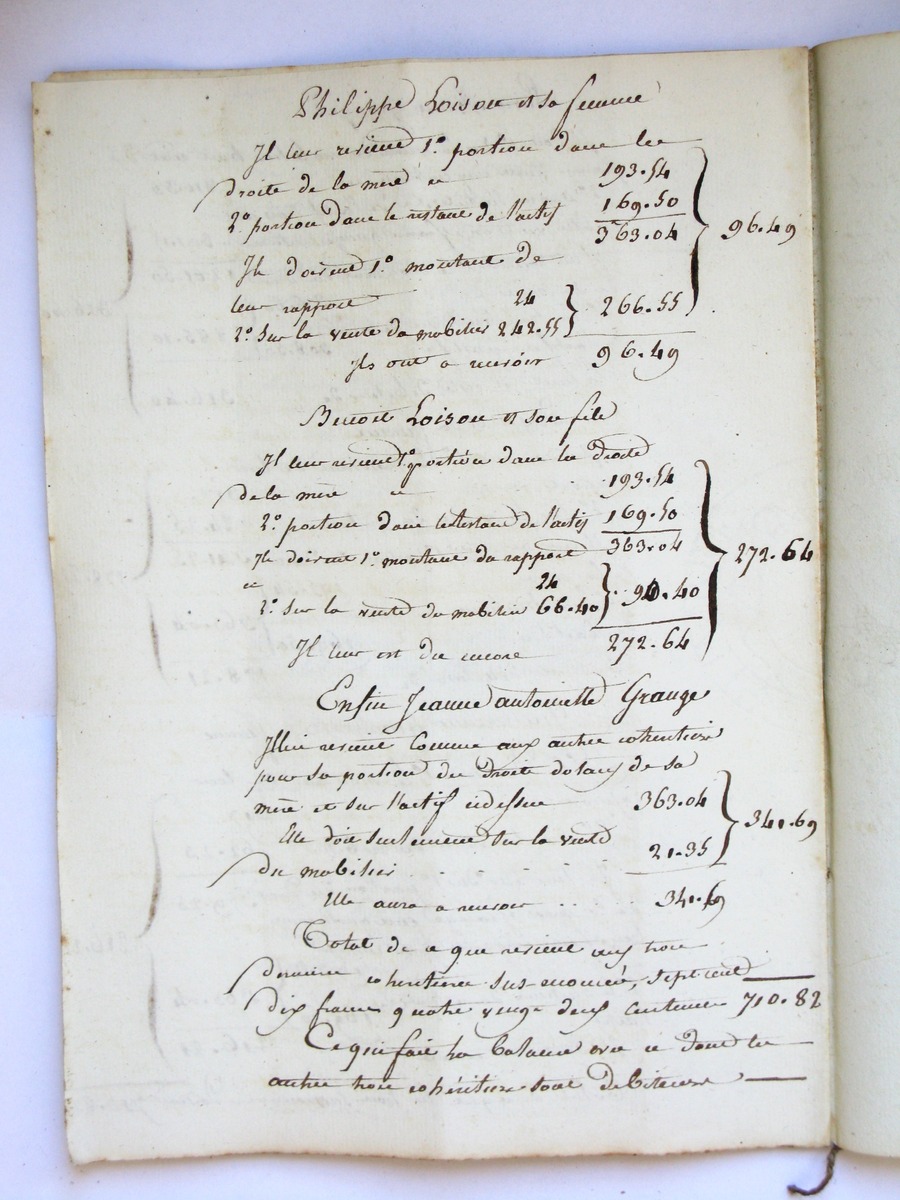 Philippe Loison et sa femme
Il leur revient 1º portion dans les
droits de la mere ci 193.54
2º portion dans le restant de l'actif 169.50
363.04
96.49
Ils doivent 1º montant de
leur rapport 24
266.55
2º Sur la vente du mobilier 242.55
Ils ont a recevoir 96.49
Benoit Loison et son fils
Il leur revient 1º portion dans les droits
de la mere ci 193.54
2º portion dans le restant de l'actif 169.50
Ils doivent 1º montant du rapport 363.04
272.64
ci 24
2º Sur la vente du mobilier 66.40 90.40
Il leur est du encore 272.64
Enfin Jeanne antoinette Grange
Il lui revient Comme aux autres coheritiers
pour sa portion des Droits dotaux de sa
mere et sur l'actif cidessus 363.04
341.69
Elle doit seulement sur la vente
du mobilier 21.35
Elle aura a recevoir 341.69
Total de ce que revient aux trois
derniers coheritiers sus nommés, sept cent
dix francs quatre vingt deux centimes 710.82
Ce qui fait la Balance avec ce dont les
autres trois cohéritiers sont Debiteurs